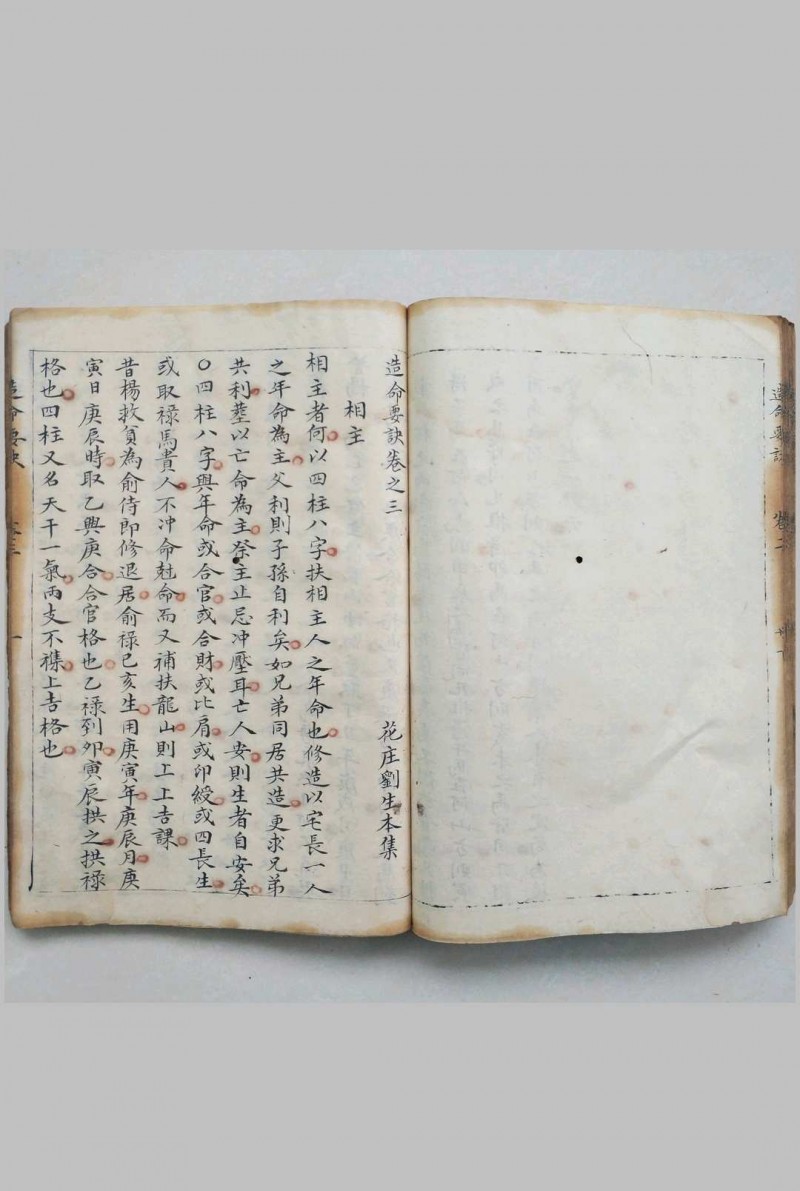 造命要訣
卷二
造命要訣卷之三 花庄劉生本集
相主
相主者何以四柱八字扶相主人之年命也修造以宅長一人
之年命為主父利則子孫自利矣如兄弟同居共造更求兄弟
共利塟以亡命為主祭主止忌冲壓耳亡人安則生者自安矣
○四柱八字與年命或合官或合財或比肩或印綬或四長生
或取祿馬貴人不冲命尅命而又補扶龍山則上上吉課
昔楊救貧為俞侍郎修退居俞祿己亥生用庚寅年庚辰月庚
寅日庚辰時取乙與庚合合官格也乙祿到卯寅辰拱之拱祿
格也四柱又名天干一氣兩支不襍上吉格也
造命要訣 卷三 一